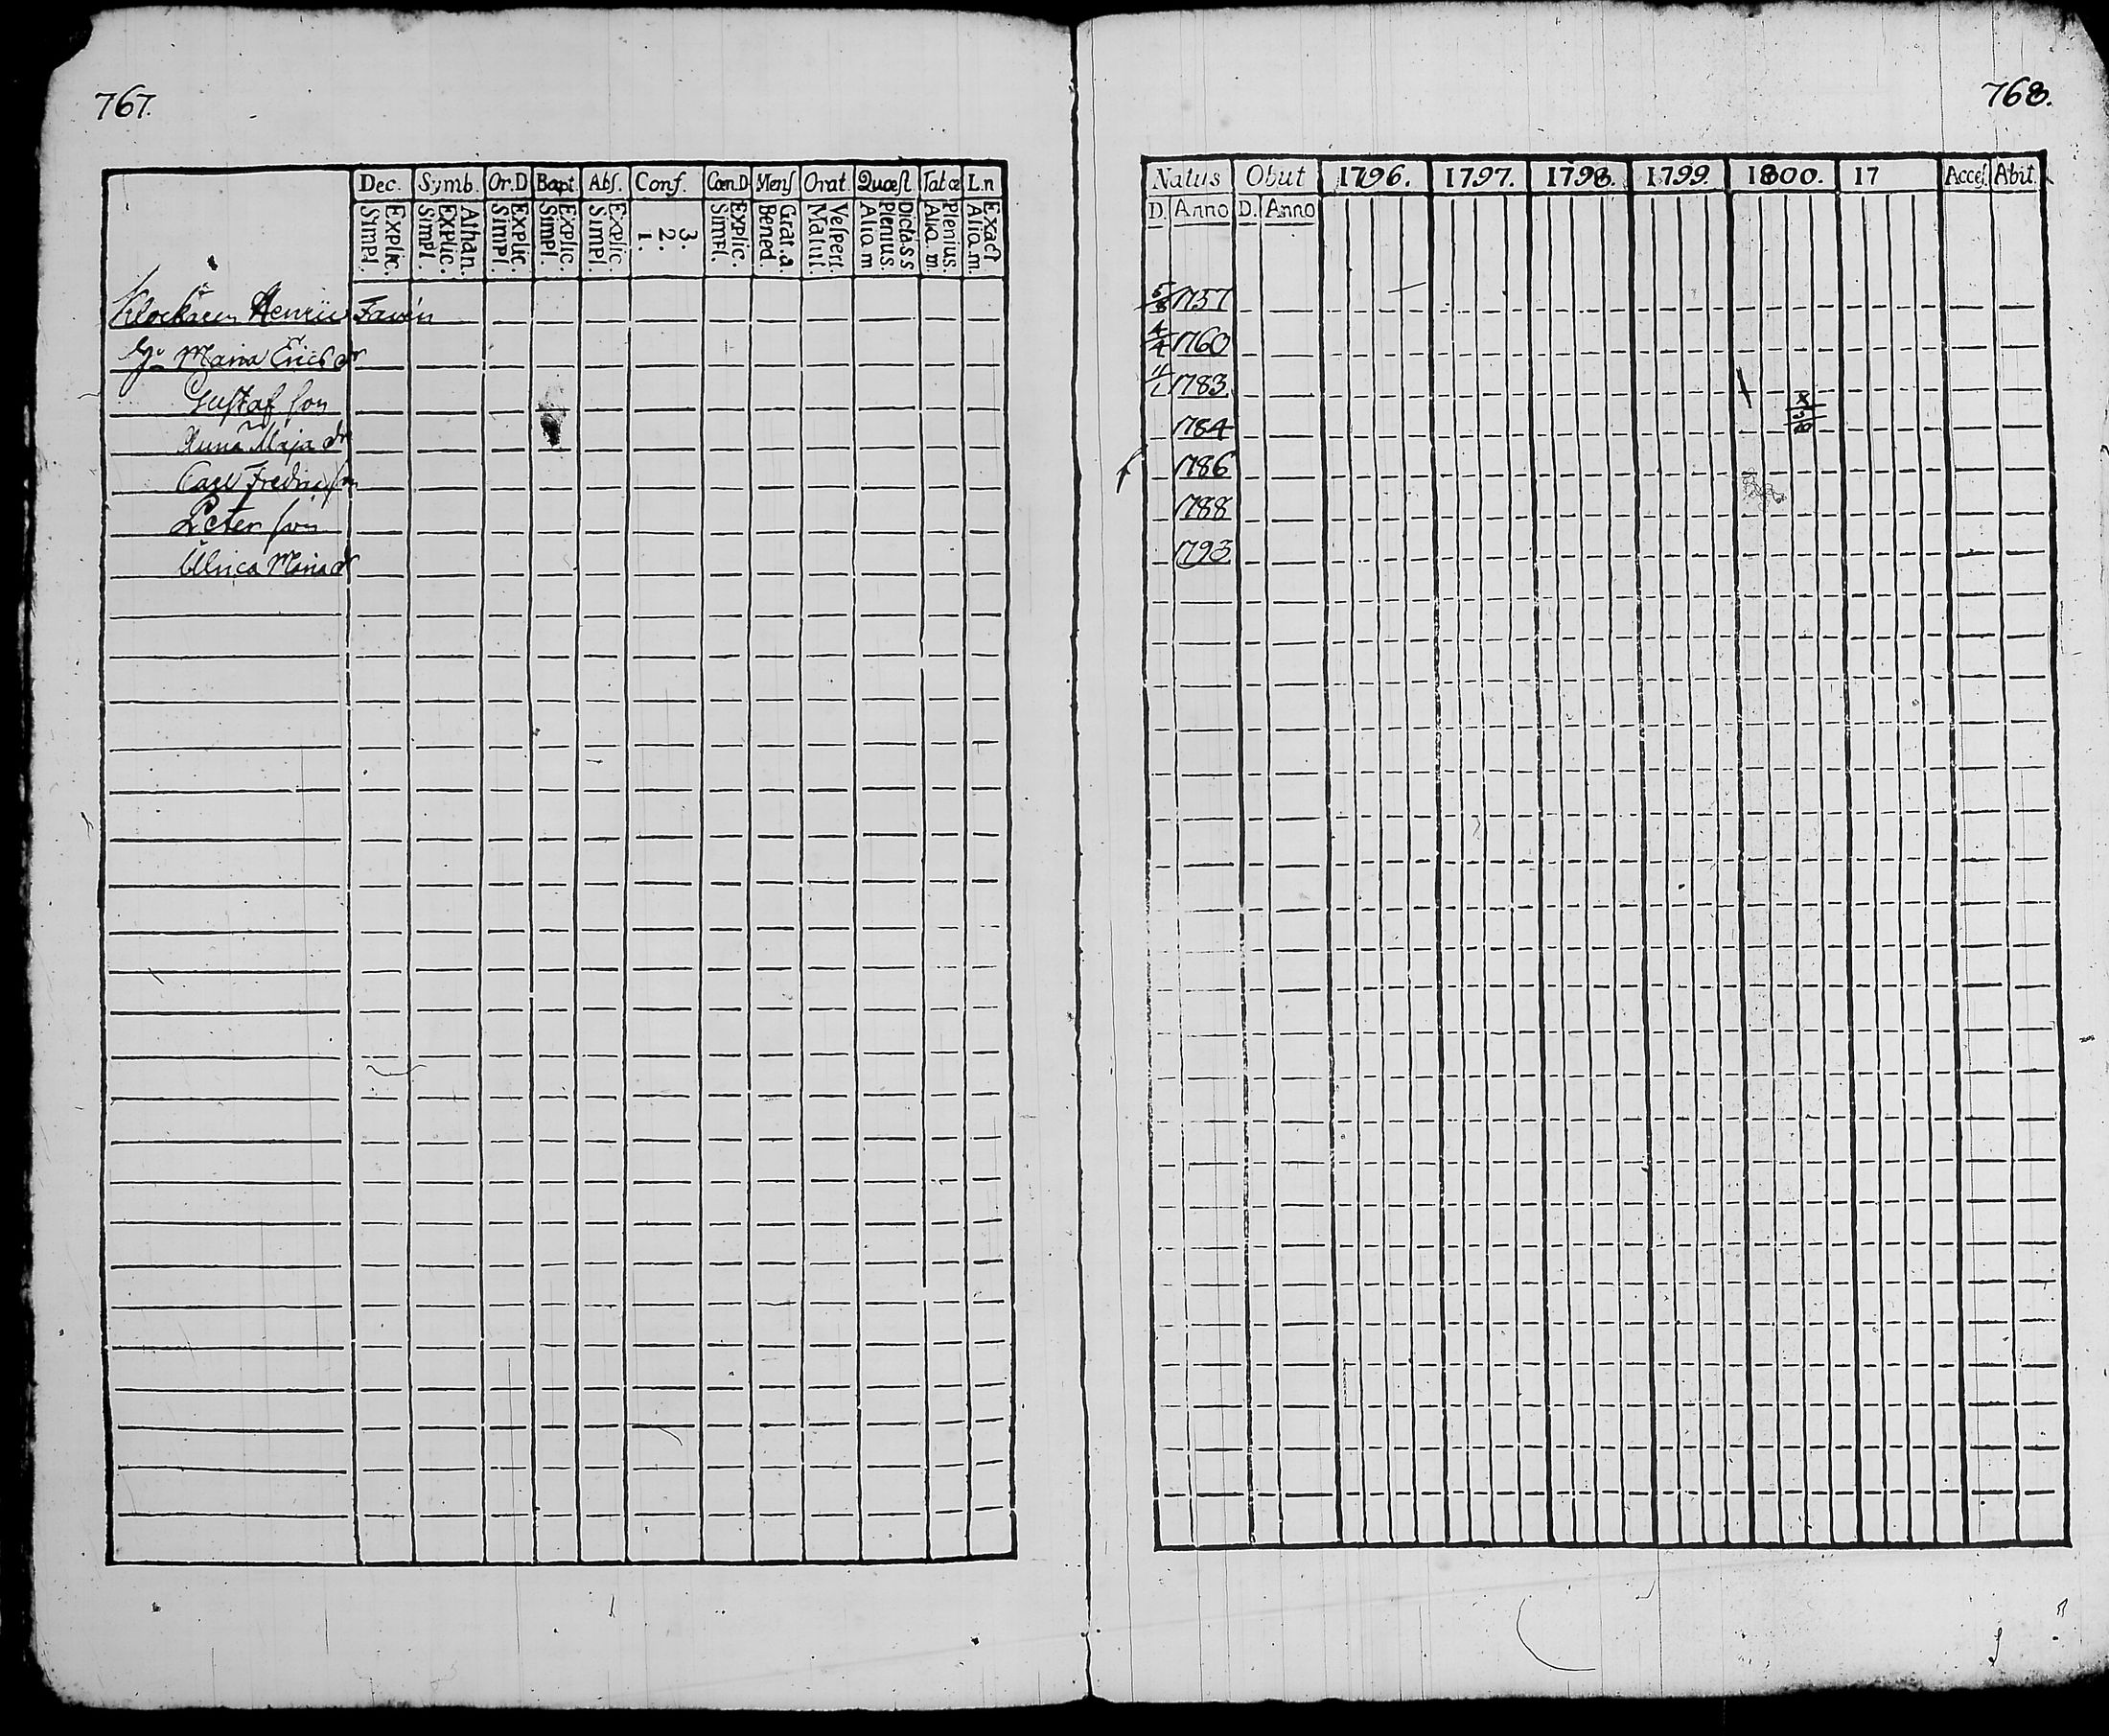 767.
Dec. Symb. Or.D Bapt. Abſ. Conf. Cœn.D Menſ Orat. Quæſt Tab.æ L.n
Simpl. Explic. Simpl. Explic. Athan. Simpl. Explic. Simpl. Explic. Simpl. Explic. 1. 2. 3. Simpl. Explic. Bened. Grat.a. Matut. Veſpert. Alia.m Plenius. Dicta.s.s Alia.m. Plenius. Alia.m. Exact
Klockaren Henric Favén
Maria Ericsdr
Gustaf son
Anna Maja dr
Carl Fredric son
Peter son
Ulrica Maria dr
768.
Natus Obiit 1796. 1797. 1798. 1799. 1800. 17 Acceſ. Abit.
D. Anno D. Anno
5/8 1757
4/4 1760
1783.
1784
1786
1788
1793